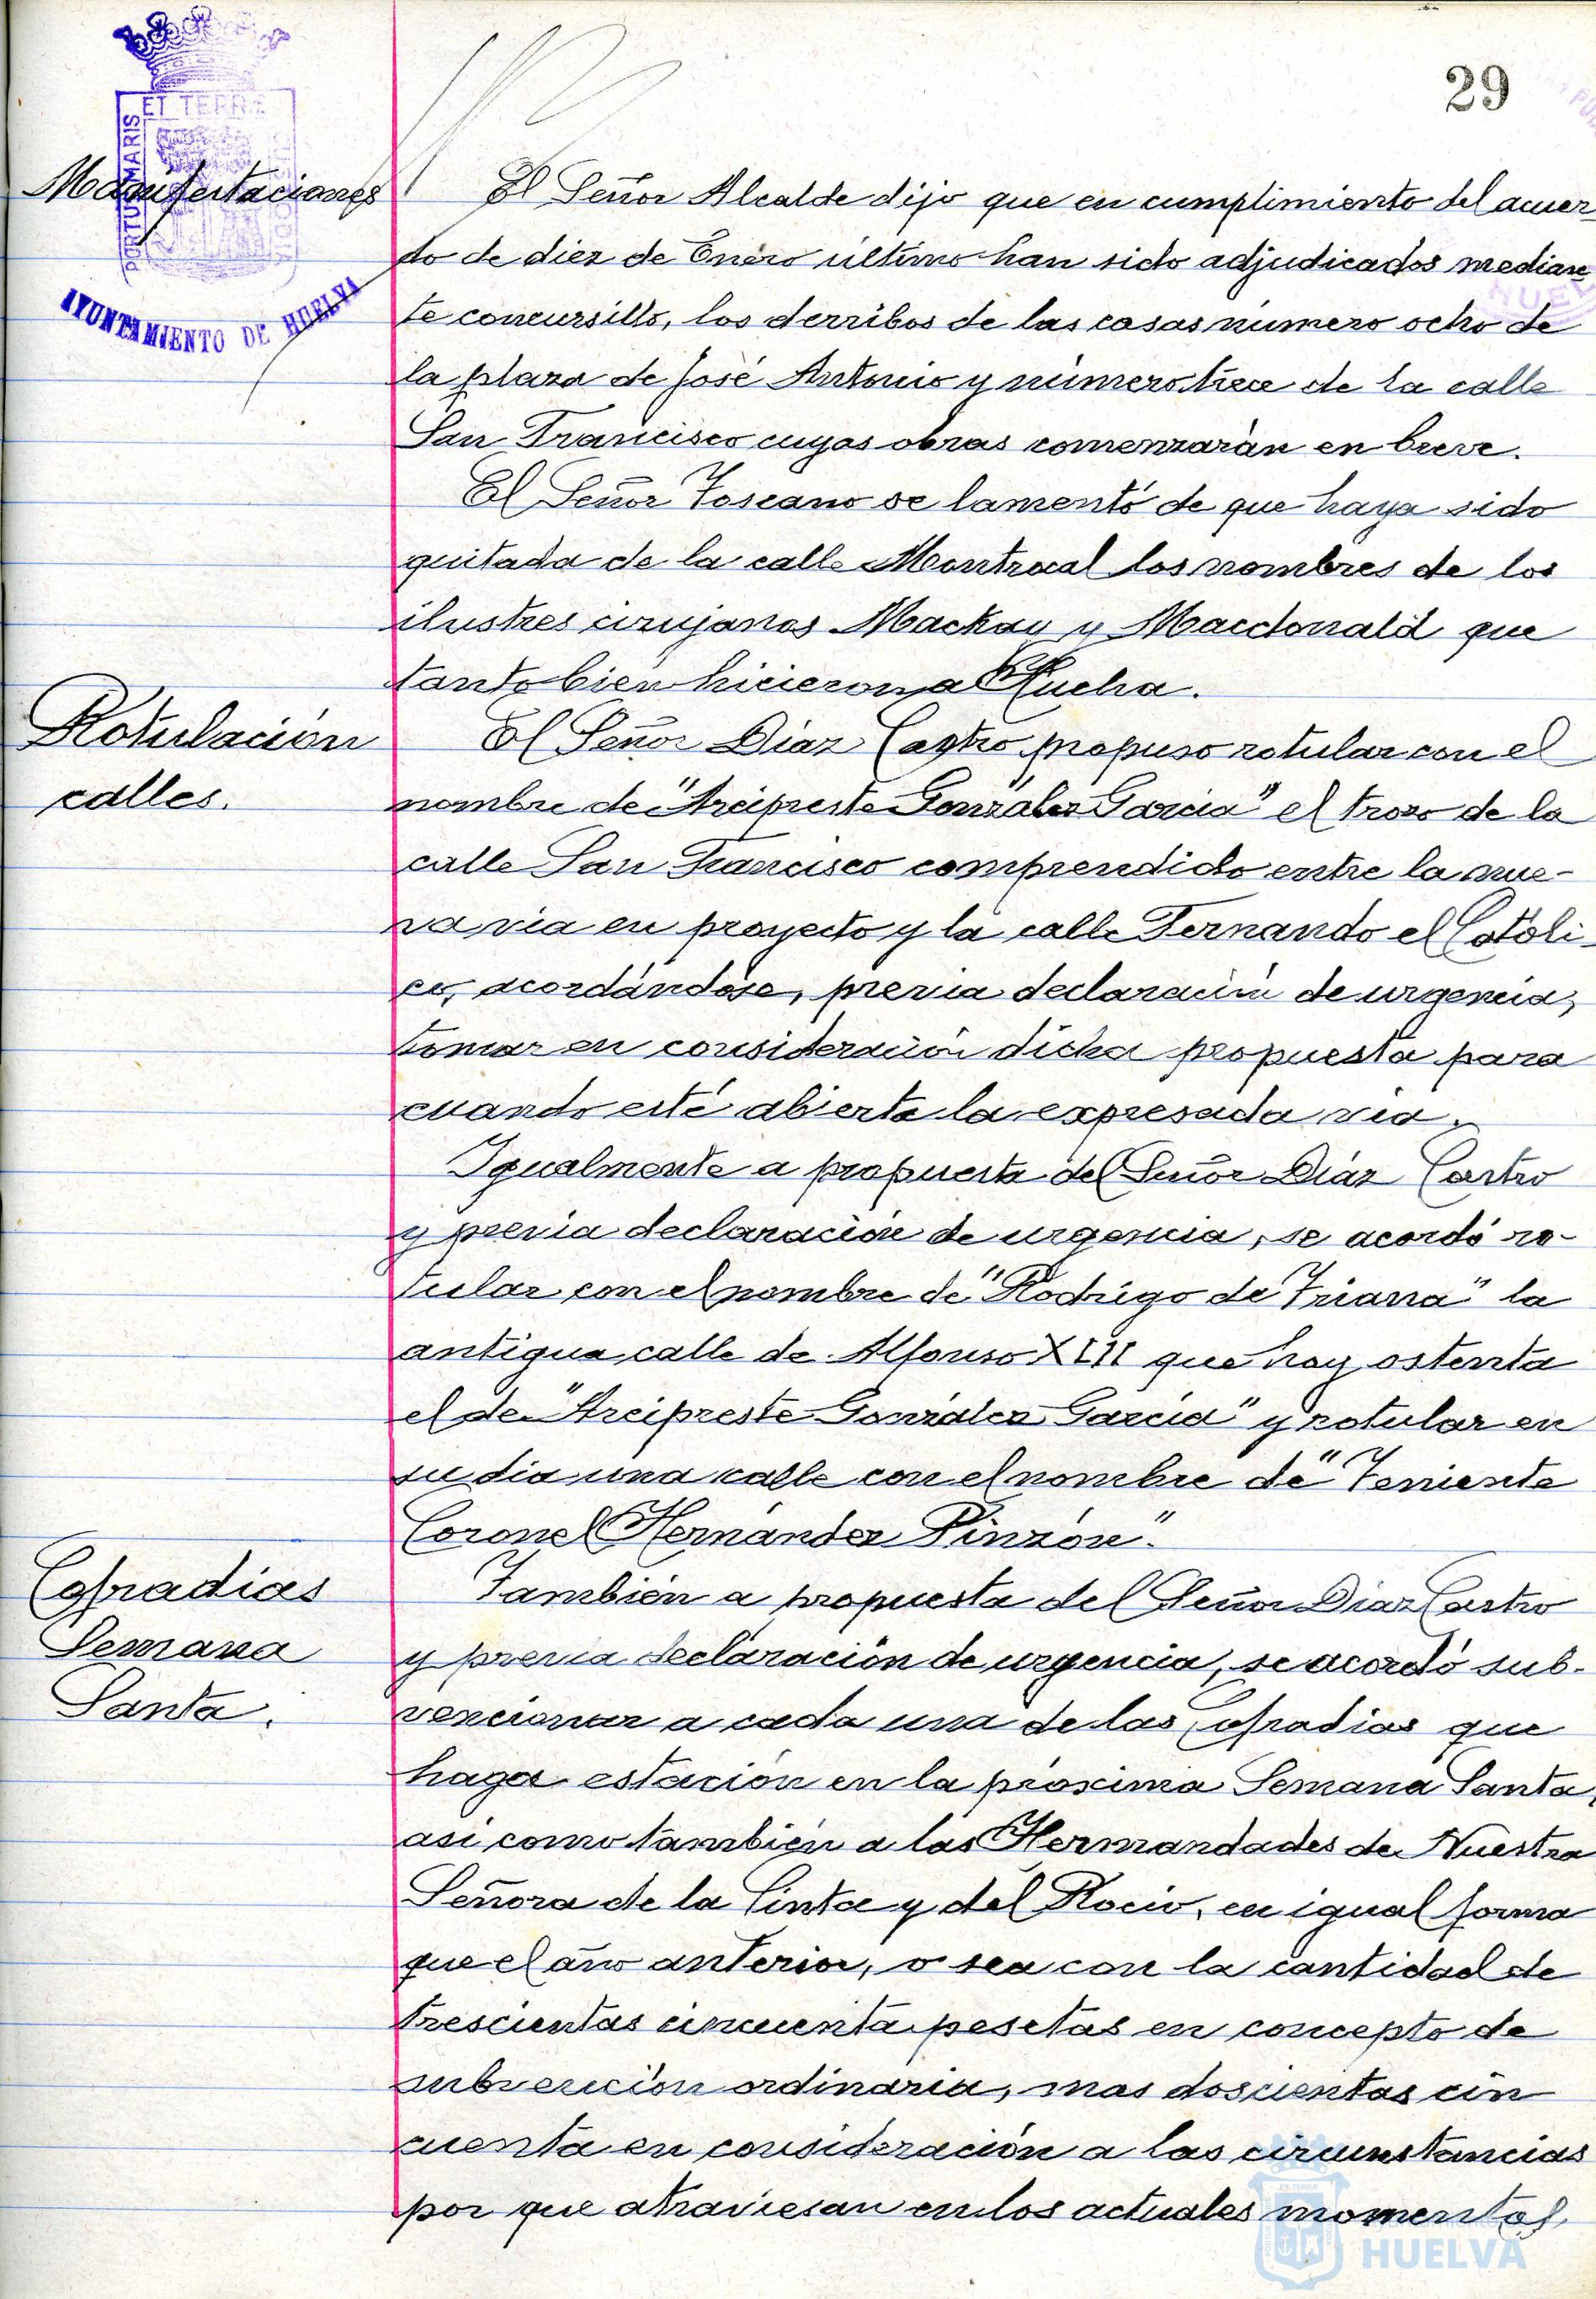 29
ET TERRÆ
PORTUS MARIS
AYUNTAMIENTO DE HUELVA
Manifestaciones
El Señor Alcalde dijo que en cumplimiento del acuer-
do de diez de Enero último han sido adjudicados median
te concursillo, los derribos de las casas número ocho de
la plaza de José Antonio y número trece de la calle
San Francisco cuyas obras comenzarán en breve.
El Señor Toscano se lamentó de que haya sido
quitada de la calle Montrocal los nombres de los
ilustres cirujanos Mackay y Macdonald que
tanto bien hicieron a Huelva.
Rotulación
calles.
El Señor Díaz Castro propuso rotular con el
nombre de "Arcipreste González García" el trozo de la
calle San Francisco comprendido entre la nue-
va via en proyecto y la calle Fernando el Católi-
co, acordándose, previa declaración de urgencia,
tomar en consideración dicha propuesta para
cuando esté abierta la expresada via.
Igualmente a propuesta del Señor Díaz Castro
y previa declaración de urgencia, se acordó ro-
tular con el nombre de "Rodrigo de Triana" la
antigua calle de Alfonso XIII que hoy ostenta
el de "Arcipreste González García" y rotular en
su dia una calle con el nombre de "Teniente
Coronel Hernández Pinzón".
Cofradias
Semana
Santa.
También a propuesta del Señor Díaz Castro
y previa declaración de urgencia, se acordó sub-
vencionar a cada una de las Cofradias que
haga estación en la próxima Semana Santa,
asi como también a las Hermandades de Nuestra
Señora de la Cinta y del Rocio, en igual forma
que el año anterior, o sea con la cantidad de
trescientas cincuenta pesetas en concepto de
subvención ordinaria, mas doscientas cin
cuenta en consideración a las circunstancias
por que atraviesan en los actuales momentos,
HUELVA